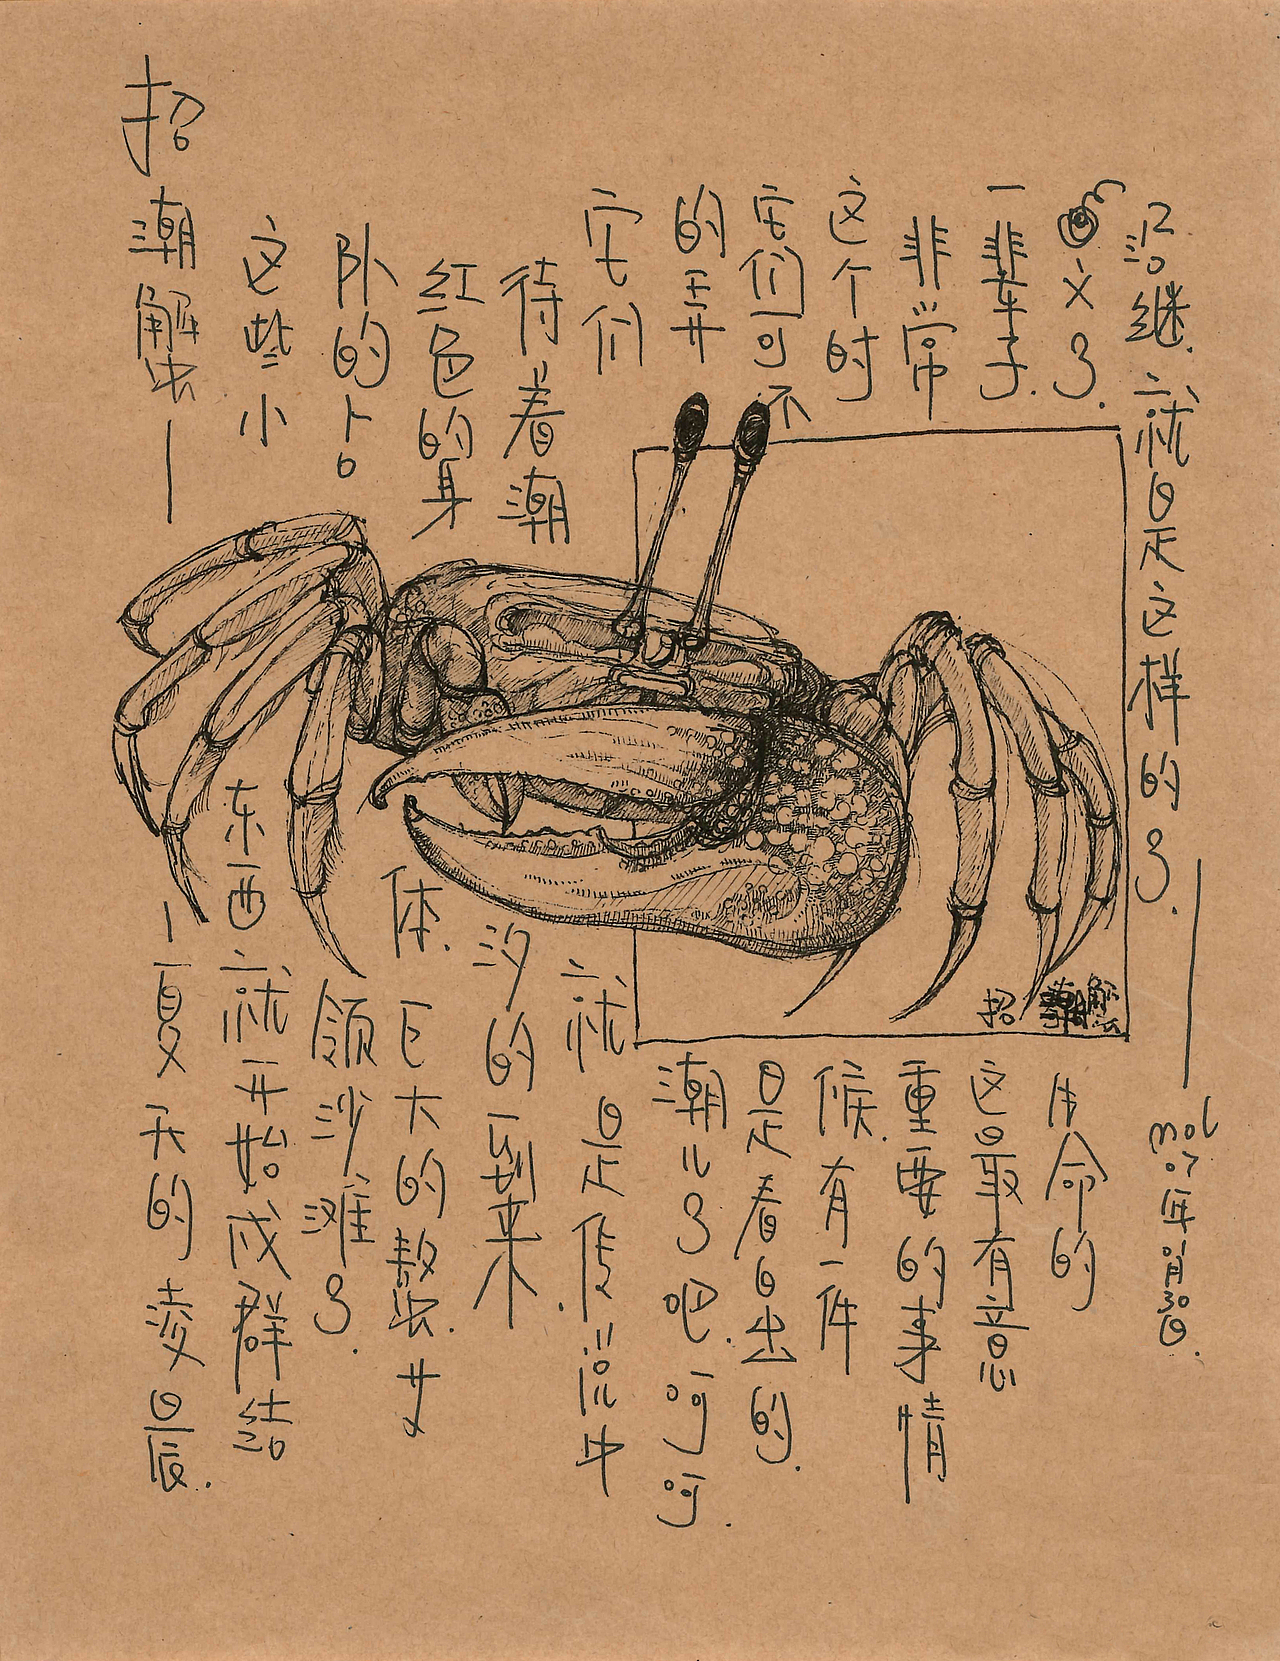 招潮蟹——夏天的凌晨.
这些小东西就开始成群结
队的占领沙滩了.
红色的身体.巨大的螯.等
待着潮汐的到来.
它们就是传说中
的弄潮儿了吧.呵呵.
它们可不是看日出的.
这个时候.有一件
非常重要的事情
一辈子.这最有意
义了.生命的
沿继.就是这样的了.——
mol
07年
30日.
招潮蟹